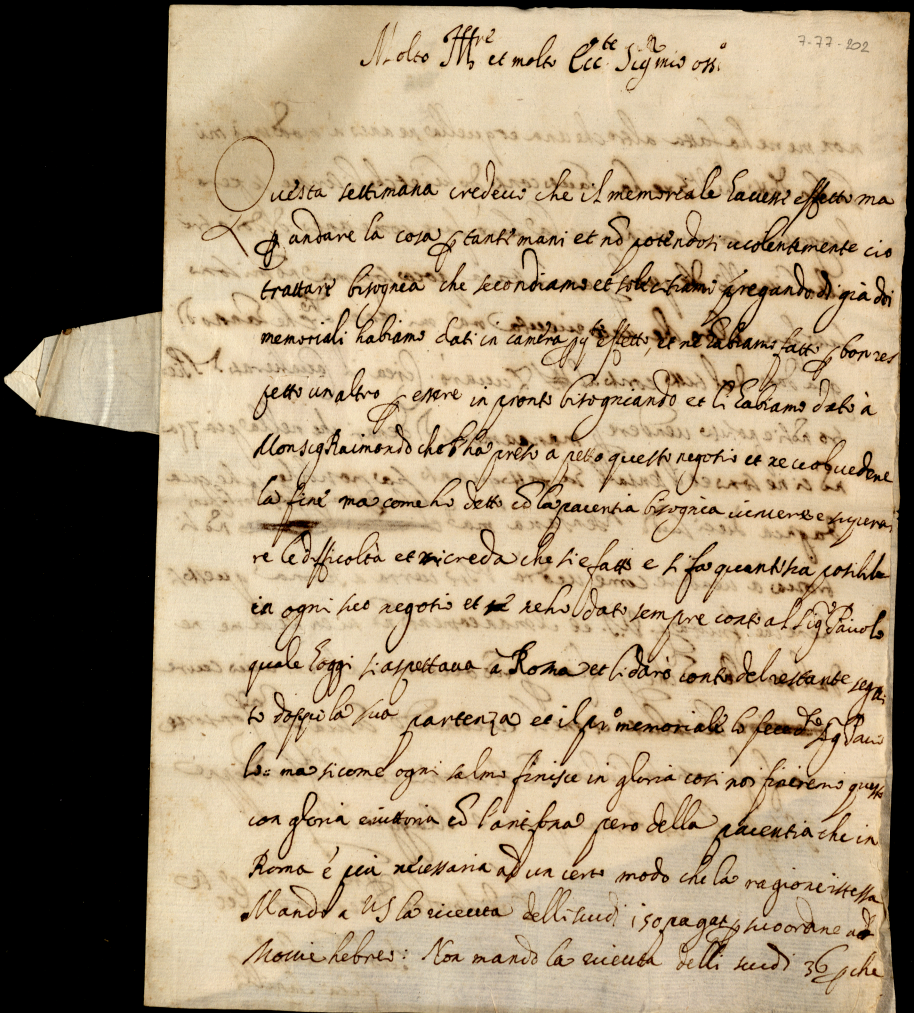 7-77-202
Molto Ill.re et molto Ecc.te Sig.r mio oss.o
Questa settimana credevo che il memoriale havesse effetto ma
p andare la cosa p tante mani et nõ potendosi violentemente ciò
trattare bisognia che secondiamo et solecitiamo pregando di già doi
memoriali habiamo dati in camera effetto, et ne habiamo fatto p bon res
petto un altro p essere in pronto bisogniando et li habiamo dato à
Monsig Raimondo che ha preso a petto questo negotio et ne vol vedere
la fine ma come ho detto cõ la pacentia bisognia vincere e supera
re le difficolta et mi creda che si e fatto e si fa quanto sia possibile
in ogni suo negotio et ne ho dato sempre conto al Sig.r Pauolo
quale hoggi si aspettava à Roma et li darò conto del restante segui
to doppo la sua partenza et il pr.o memoriale lo Sig Pauo
lo = ma sicome ogni salmo finisce in gloria cosi noi finiremo questo
con gloria e vittoria cõ l'antifona pero della pacentia che in
Roma é piu necessaria ad un certo modo che la ragione istessa
Mando a VS la riceuta delli scudi 150 pagati p suo ordine ad
hebreo: Non mando la riceuta delli scudi 36 p che